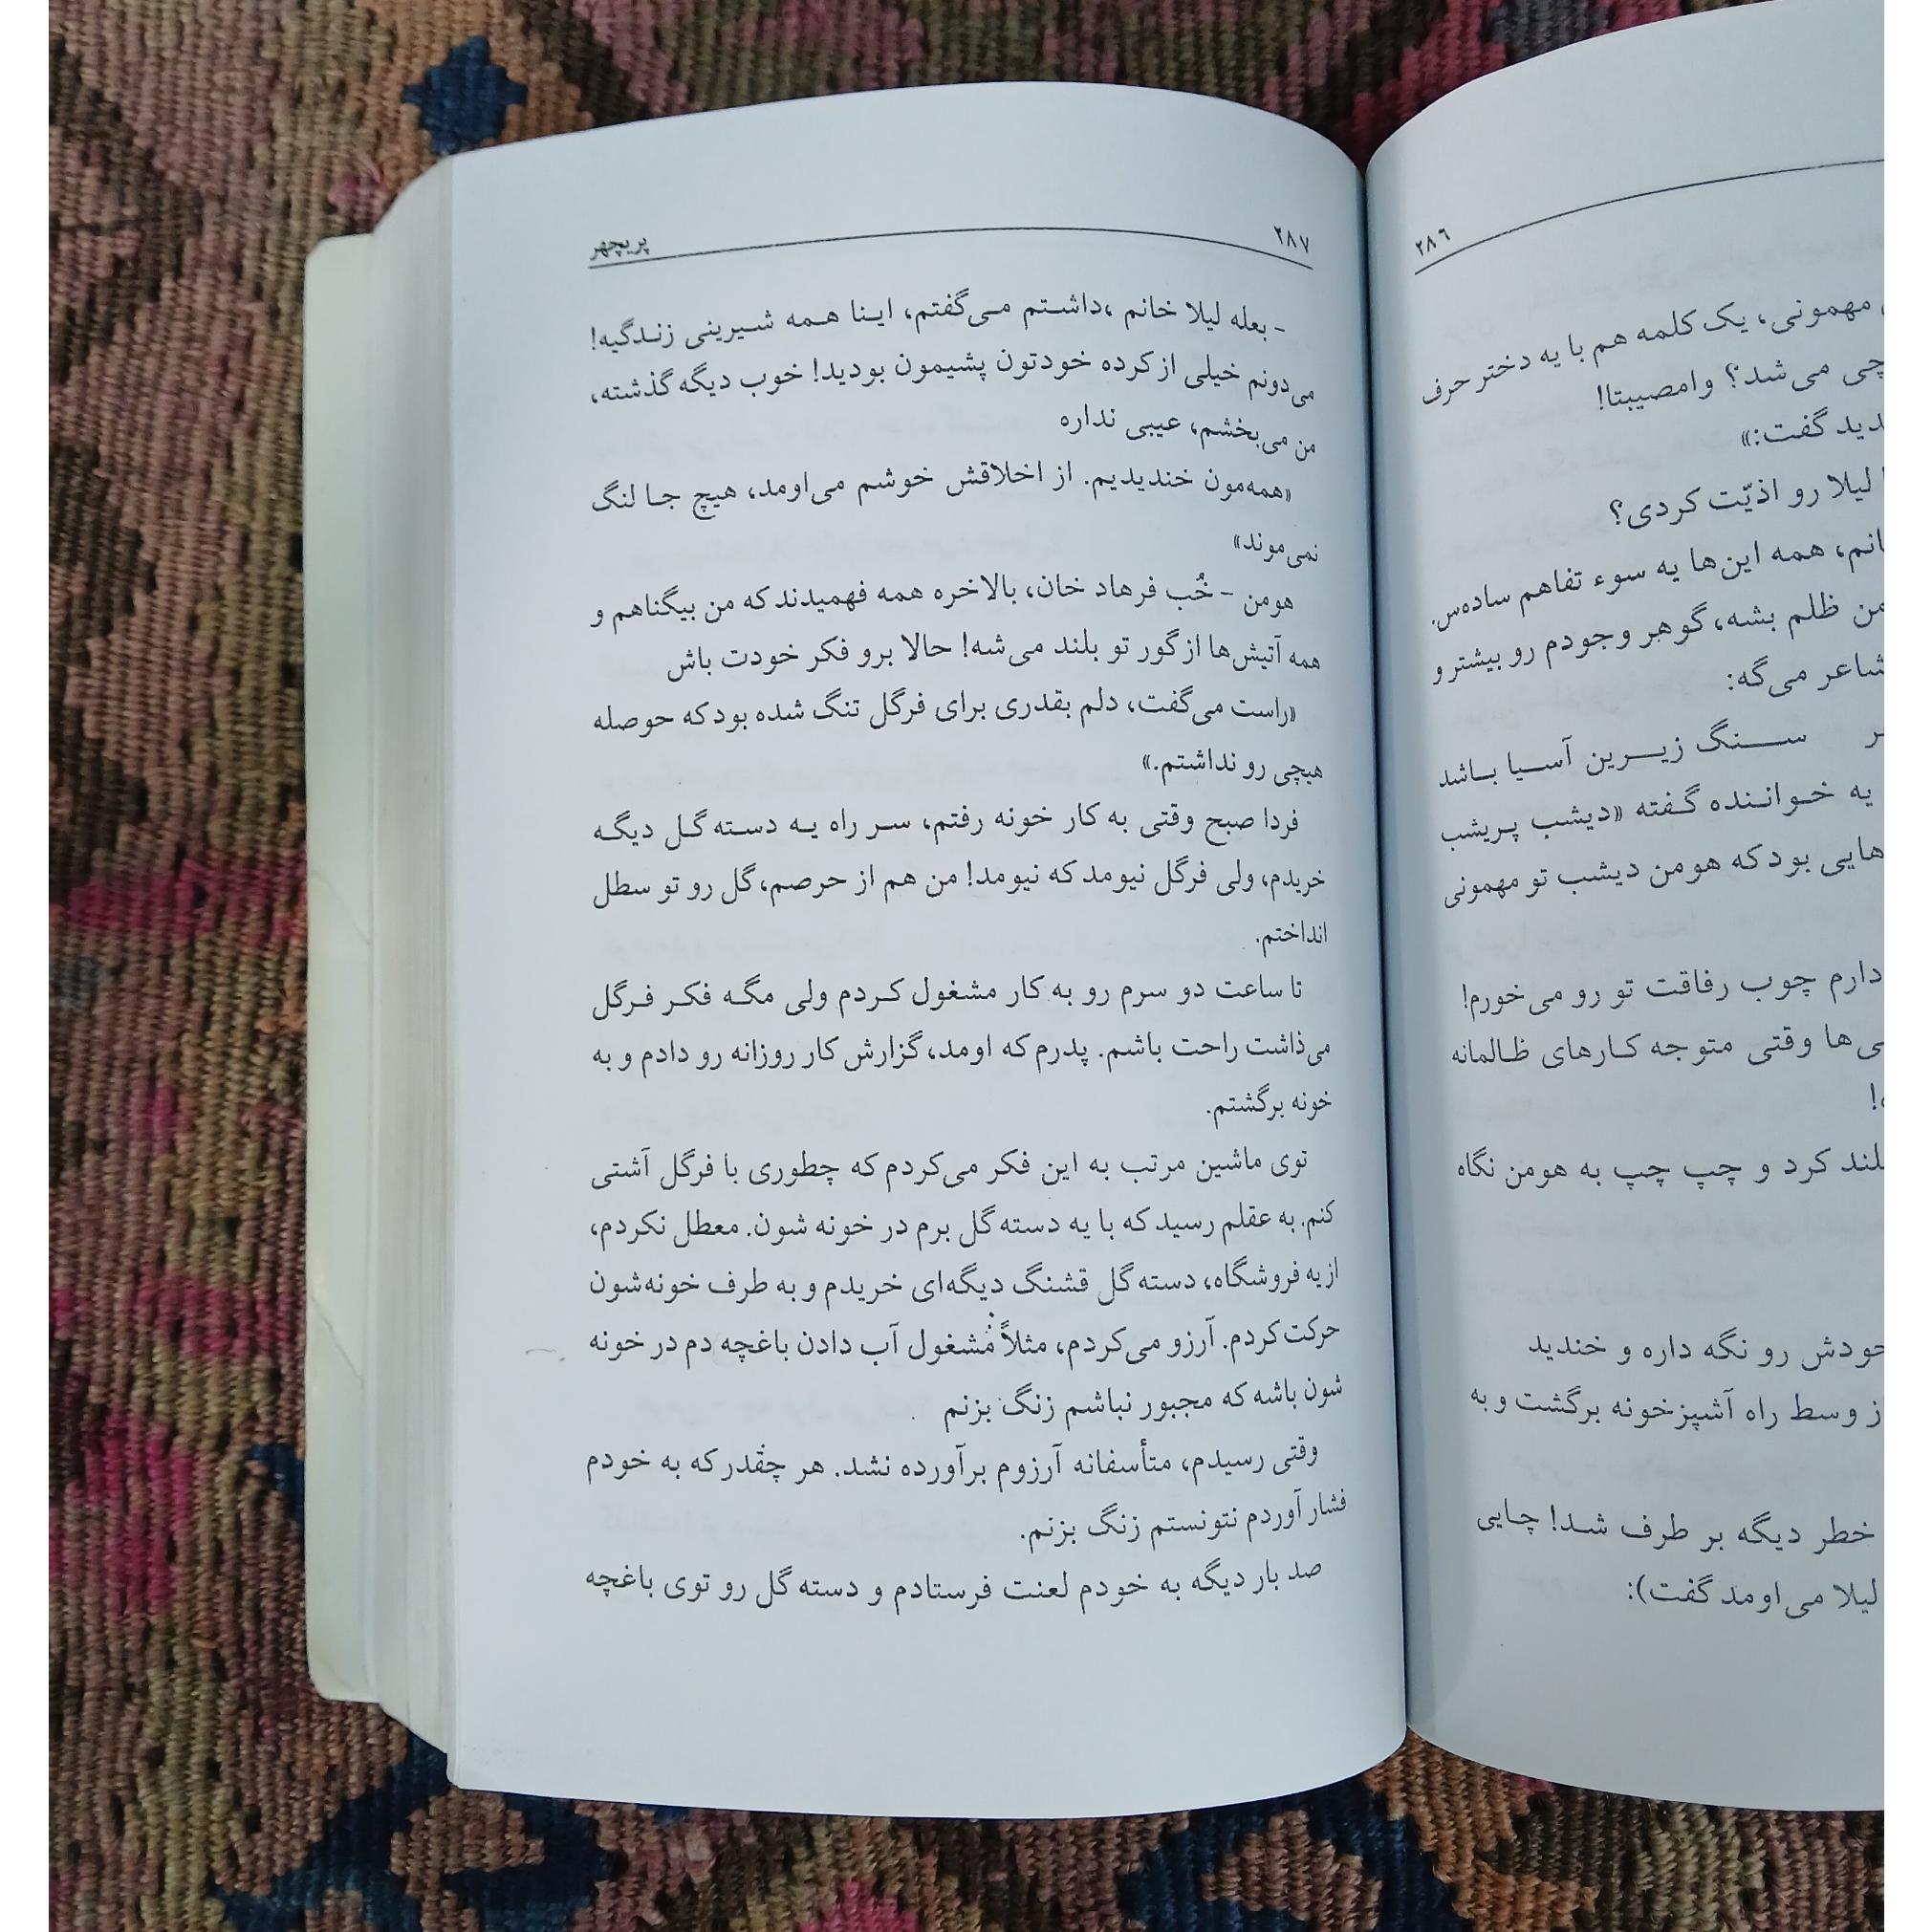 ۲۸۶
مهمونی، یک کلمه هم با یه دختر حرف
چی می‌شد؟ وامصیبتا!
گفت:»
لیلا رو اذیّت کردی؟
همه این‌ها یه سوء تفاهم ساده‌س.
من ظلم بشه، گوهر وجودم رو بیشتر و
شاعر می‌گه:
سنگ زیرین آسیا باشد
یه خواننده گفته «دیشب پریشب
هایی بود که هومن دیشب تو مهمونی
دارم چوب رفاقت تو رو می‌خورم!
وقتی متوجه کارهای ظالمانه
بلند کرد و چپ چپ به هومن نگاه
خودش رو نگه داره و خندید
از وسط راه آشپزخونه برگشت و به
خطر دیگه بر طرف شد! چایی
لیلا می‌اومد گفت):
۲۸۷ پریچهر
- بعله لیلا خانم ،داشتم می‌گفتم، اینا همه شیرینی زندگیه!
می‌دونم خیلی از کرده خودتون پشیمون بودید! خوب دیگه گذشته،
من می‌بخشم، عیبی نداره
«همه‌مون خندیدیم. از اخلاقش خوشم می‌اومد، هیچ جا لنگ
نمی‌موند»
هومن - خُب فرهاد خان، بالاخره همه فهمیدند که من بیگناهم و
همه آتیش‌ها از گور تو بلند می‌شه! حالا برو فکر خودت باش
«راست می‌گفت، دلم بقدری برای فرگل تنگ شده بود که حوصله
هیچی رو نداشتم.»
فردا صبح وقتی به کار خونه رفتم، سر راه یه دسته گل دیگه
خریدم، ولی فرگل نیومد که نیومد! من هم از حرصم، گل رو تو سطل
انداختم.
تا ساعت دو سرم رو به کار مشغول کردم ولی مگه فکر فرگل
می‌ذاشت راحت باشم. پدرم که اومد، گزارش کار روزانه رو دادم و به
خونه برگشتم.
توی ماشین مرتب به این فکر می‌کردم که چطوری با فرگل آشتی
کنم. به عقلم رسید که با یه دسته گل برم در خونه شون. معطل نکردم،
از یه فروشگاه، دسته گل قشنگ دیگه‌ای خریدم و به طرف خونه‌شون
حرکت کردم. آرزو می‌کردم، مثلاً مشغول آب دادن باغچه دم در خونه
شون باشه که مجبور نباشم زنگ بزنم
وقتی رسیدم، متأسفانه آرزوم برآورده نشد. هر چقدر که به خودم
فشار آوردم نتونستم زنگ بزنم.
صد بار دیگه به خودم لعنت فرستادم و دسته گل رو توی باغچه